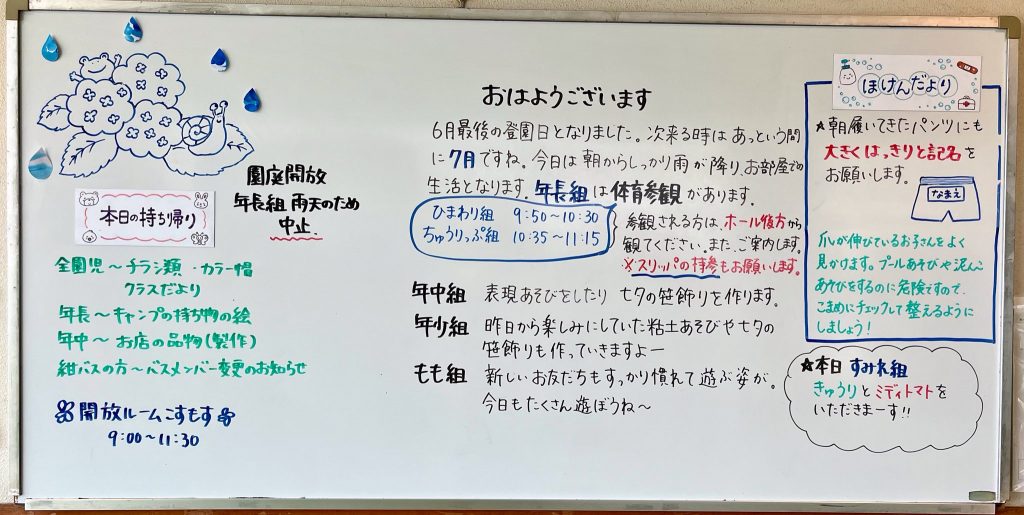 園庭開放
年長組 雨天のため
中止.
本日の持ち帰り
全園児～チラシ類・カラー帽
クラスだより
年長～キャンプの持ち物の絵
年中～お店の品物(製作)
紺バスの方～バスメンバー変更のお知らせ
開放ルームこすもす
9:00～11:30
おはようございます
6月最後の登園日となりました。次来る時はあっという間
に7月ですね。今日は朝からしっかり雨が降り、お部屋での
生活となります。年長組は体育参観があります。
ひまわり組 9:50～10:30
ちゅうりっぷ組 10:35～11:15
参観される方は、ホール後方から
観てください。また、ご案内します。
※スリッパの持参もお願いします。
年中組 表現あそびをしたり 七夕の笹飾りを作ります。
年少組 昨日から楽しみにしていた粘土あそびや七夕の
笹飾りも作っていきますよー
もも組 新しいお友だちもすっかり慣れて遊ぶ姿が。
今日もたくさん遊ぼうね～
ほけんだより
★朝履いてきたパンツにも
大きくはっきりと記名を
お願いします。
なまえ
爪が伸びているお子さんをよく
見かけます。プールあそびや泥んこ
あそびをするのに危険ですので、
こまめにチェックして整えるように
しましょう！
★本日 すみれ組
きゅうりとミディトマトを
いただきまーす!!